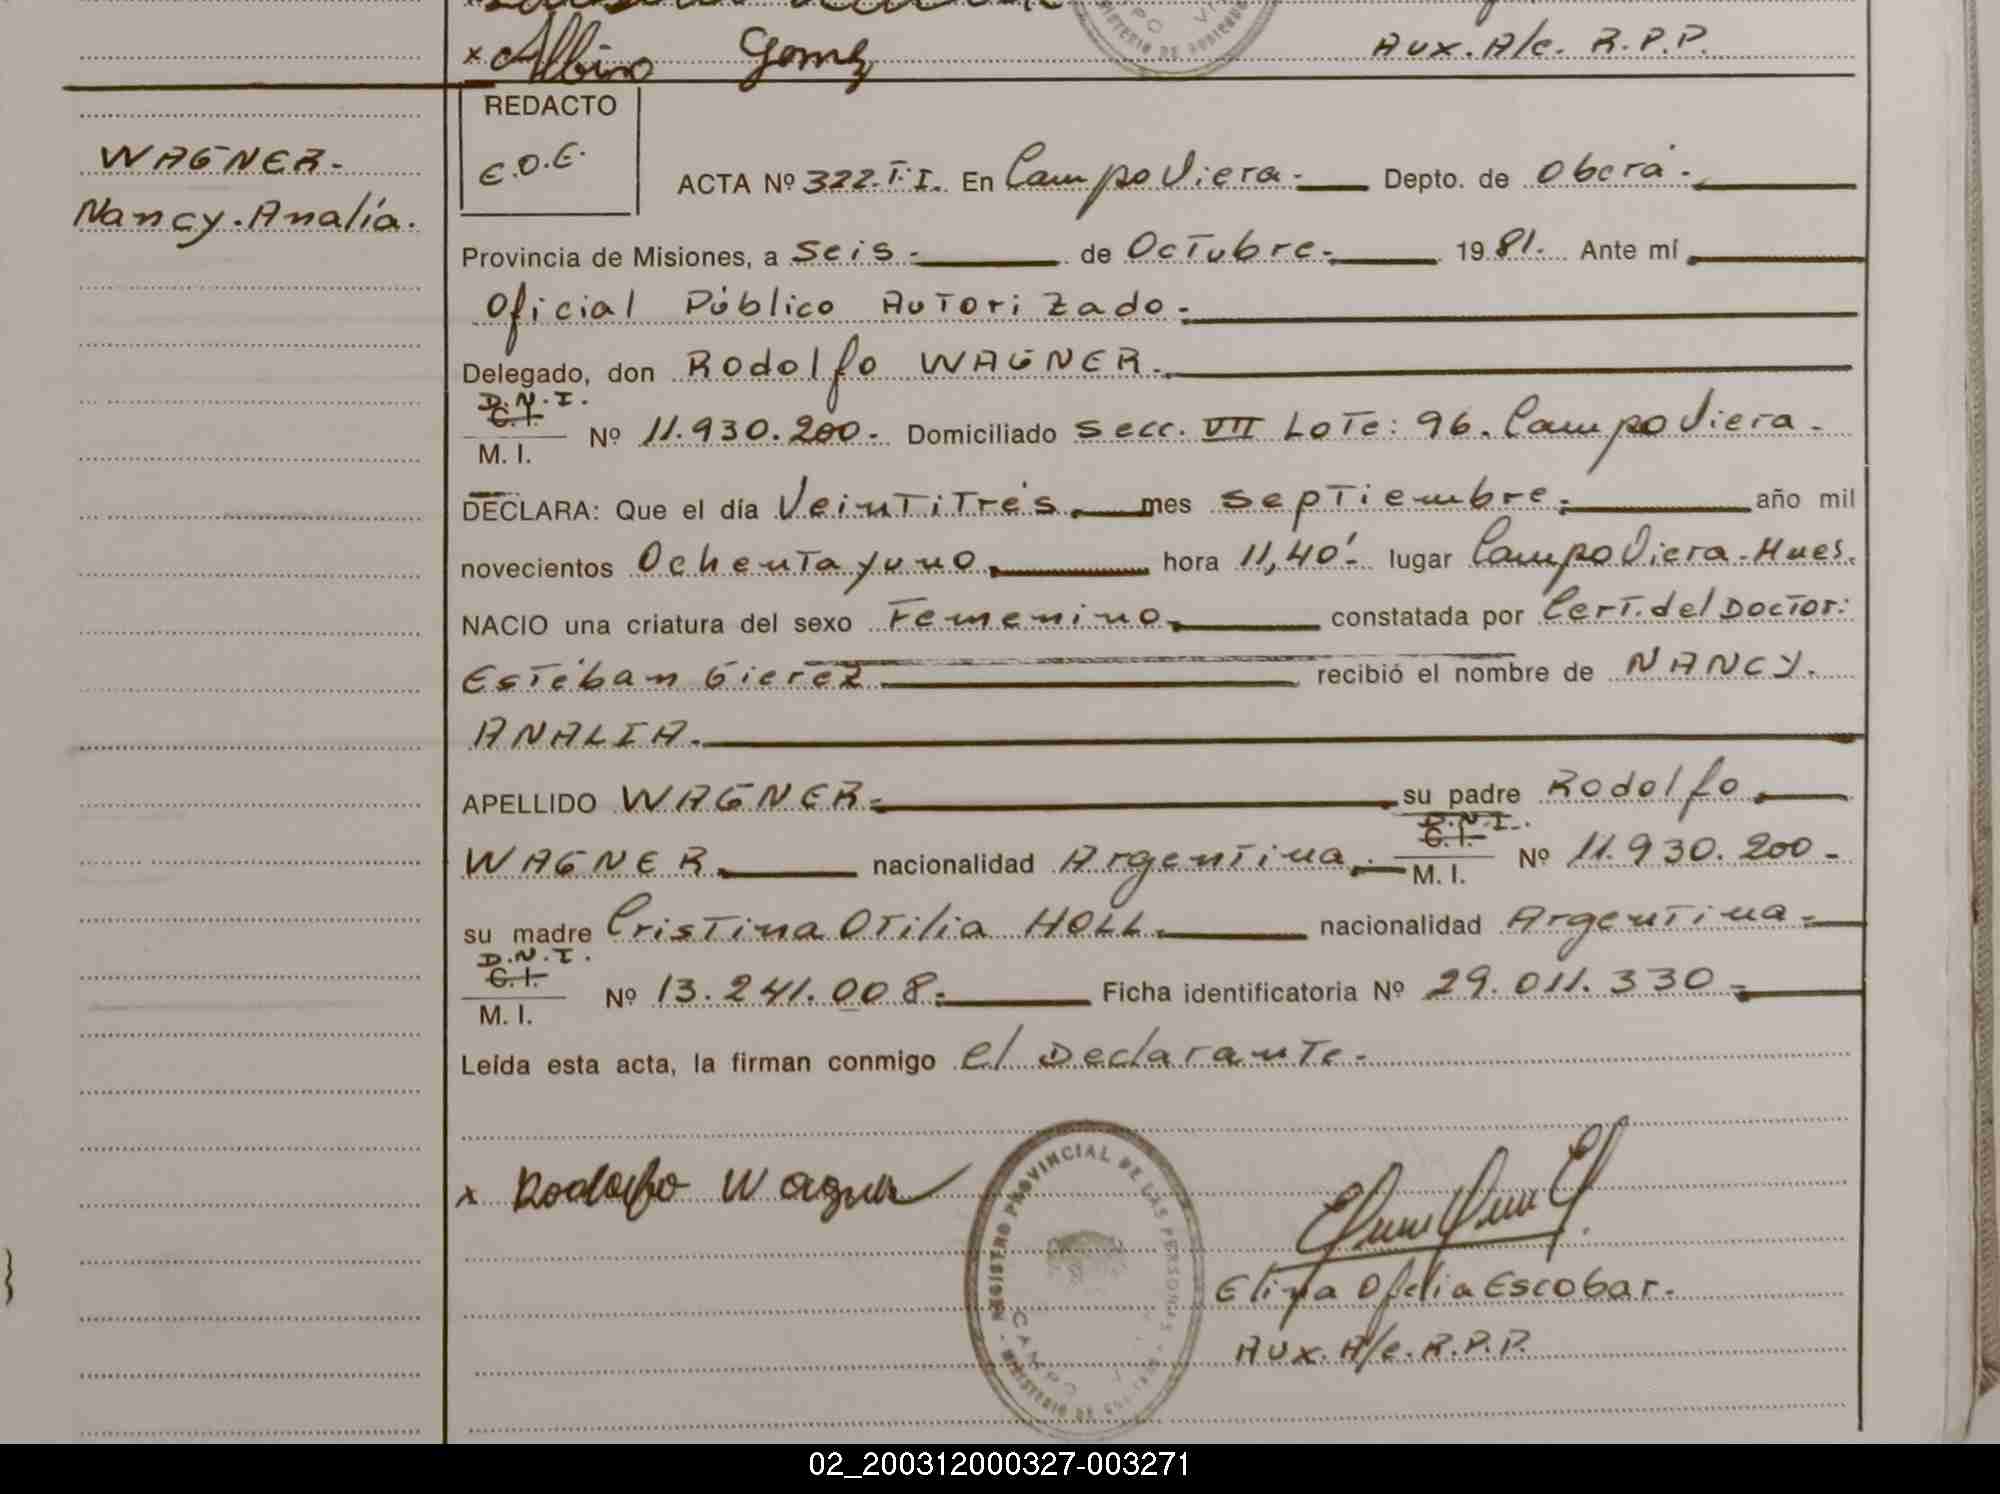 x Albino Gomez
Aux. A/c. R.P.P.
REDACTO
E.O.E.
WAGNER.
Nancy. Analía.
ACTA Nº 322. T.I. En Campo Viera. Depto. de Oberá.
Provincia de Misiones, a Seis. de Octubre. 1981. Ante mí
Oficial Público Autorizado.
Delegado, don Rodolfo WAGNER.
D.N.I.
C.I.
M. I.
Nº 11.930.200. Domiciliado Secc. VII Lote: 96. Campo Viera.
DECLARA: Que el día Veintitrés. mes Septiembre. año mil
novecientos Ochenta y uno. hora 11,40'. lugar Campo Viera. Mnes.
NACIO una criatura del sexo Femenino. constatada por Cert. del Doctor:
Esteban Gierez recibió el nombre de NANCY.
ANALIA.
APELLIDO WAGNER. su padre Rodolfo
D.N.I.
C.I.
WAGNER nacionalidad Argentina. M. I. Nº 11.930.200.
su madre Cristina Otilia HOLL. nacionalidad Argentina.
D.N.I.
C.I.
M. I.
Nº 13.241.008. Ficha identificatoria Nº 29.011.330
Leída esta acta, la firman conmigo el Declarante.
x Rodolfo Wagner
REGISTRO PROVINCIAL DE LAS PERSONAS
CAMPO
MINISTERIO DE
Elina Ofelia Escobar.
Aux. A/c. R.P.P.
02_200312000327-003271